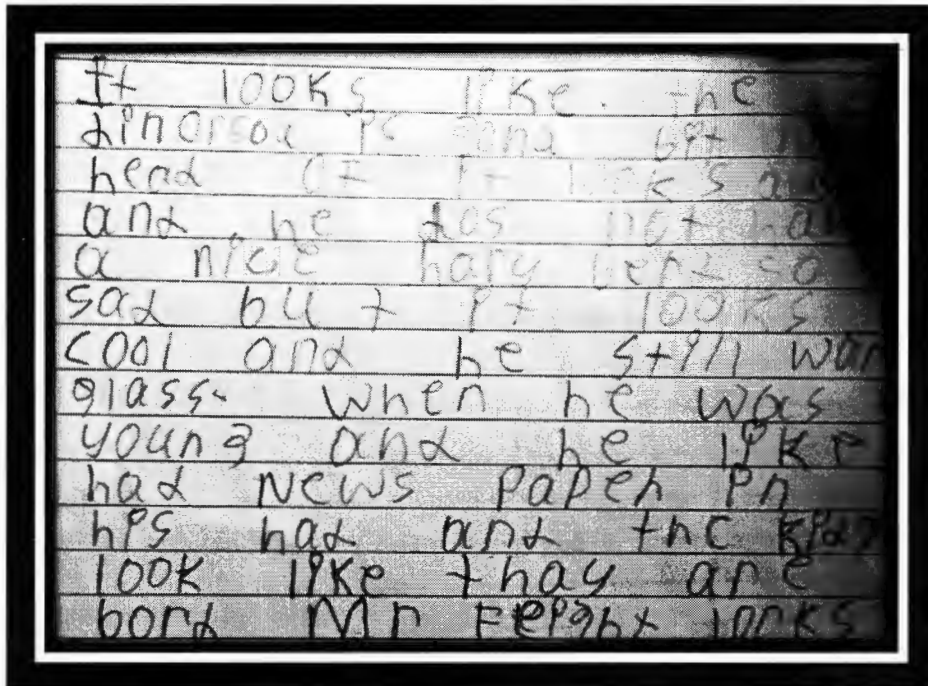 It looks like the
dinorsou is gona bit
head of it looks
and he dos not hav
a nice hary berd so
sad but it looks
cool and he still war
glass. when he was
young and he like
had News paper in
his had and the kids
look like thay are
bord Mr Feight looks